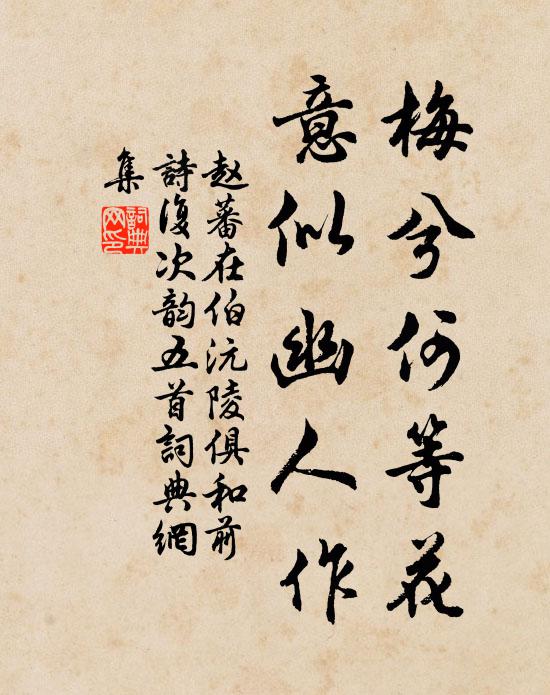 梅兮何等花
意似幽人作
赵蕃在伯沅陵俱和前
詩復次韵五首詞典網
集
詞典网印